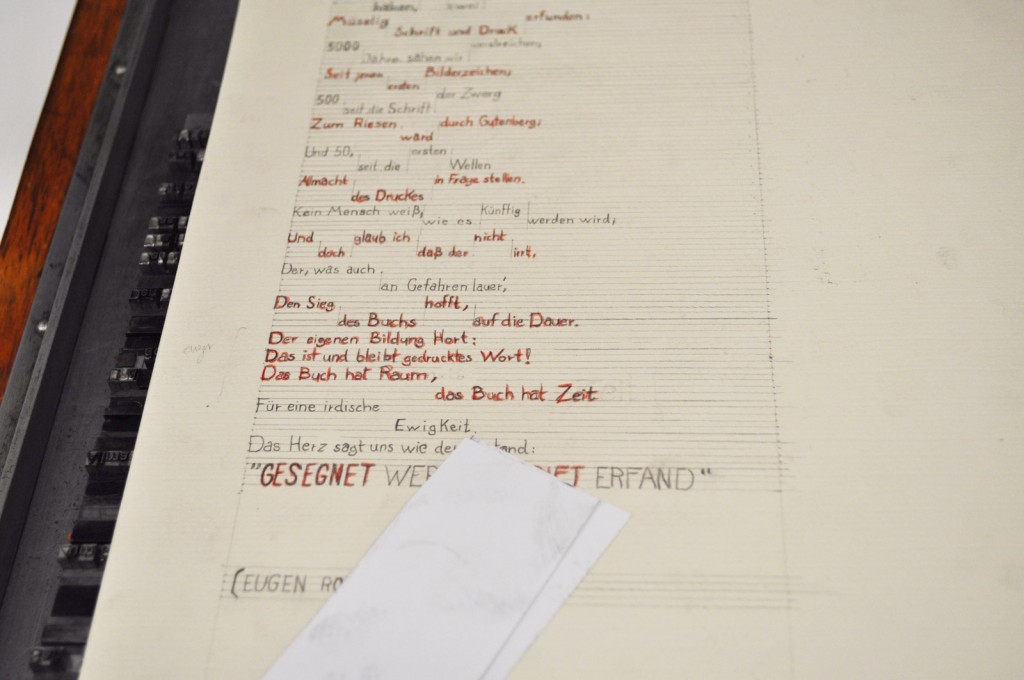 haben, zwei
Müselig erfunden:
Schrift und Druck
5000 verstreichen,
Jahre sahen wir
Seit jenen Bilderzeichen;
ersten
500 der Zwerg
seit die Schrift
Zum Riesen durch Gutenberg;
ward
Und 50, ersten
seit die Wellen
Allmacht in Frage stellen.
des Druckes
Kein Mensch weiß, Künftig
wie es werden wird;
Und glaub ich nicht
doch daß der irrt,
Der, was auch
an Gefahren lauer',
Den Sieg hofft,
des Buchs auf die Dauer.
Der eigenen Bildung Hort:
Das ist und bleibt gedrucktes Wort!
Das Buch hat Raum,
das Buch hat Zeit
Für eine irdische
Ewigkeit.
Das Herz sagt uns wie
"GESEGNET ERFAND"
(EUGEN